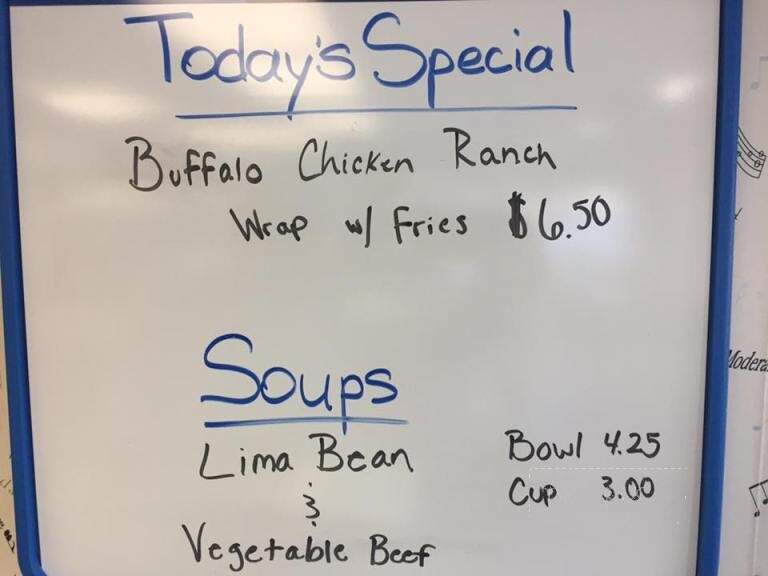 Today's Special
Buffalo Chicken Ranch
Wrap w/ Fries $6.50
Soups
Lima Bean
&
Vegetable Beef
Bowl 4.25
Cup 3.00